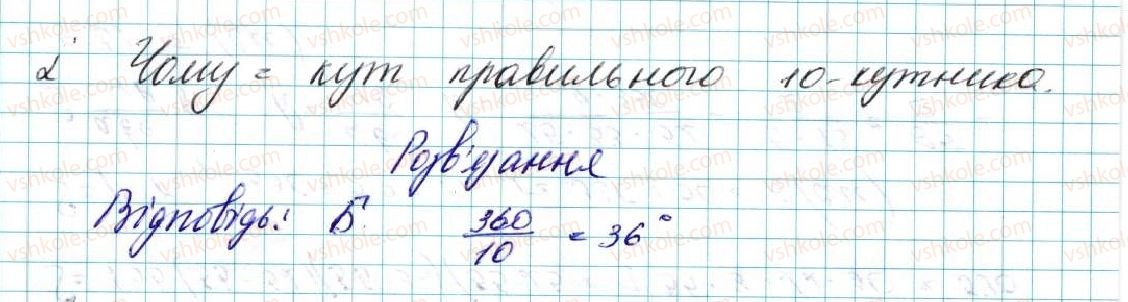 2 Чому = кут правильного 10-кутника.
Розв'язання
Відповідь: Б. 360/10 = 36°